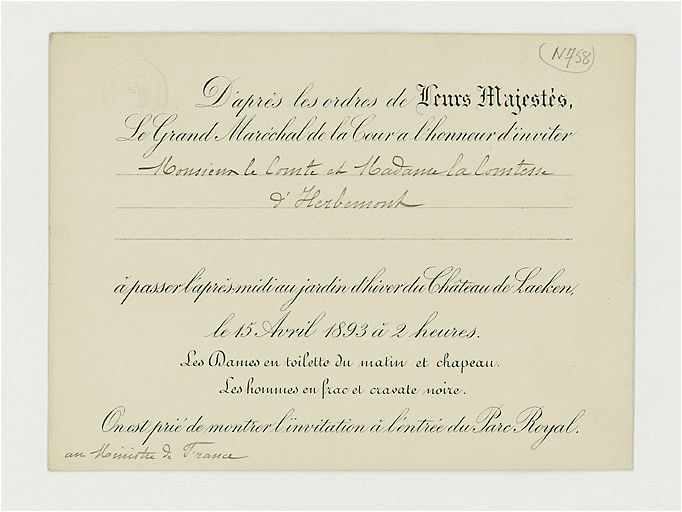 N758
D'après les ordres de Leurs Majestés,
Le Grand Maréchal de la Cour a l'honneur d'inviter
Monsieur le Comte et Madame la Comtesse
d'Herbemont
à passer l'après-midi au jardin d'hiver du Château de Laeken,
le 15 Avril 1893 à 2 heures.
Les Dames en toilette du matin et chapeau.
Les hommes en frac et cravate noire.
On est prié de montrer l'invitation à l'entrée du Parc Royal.
au Ministre de France